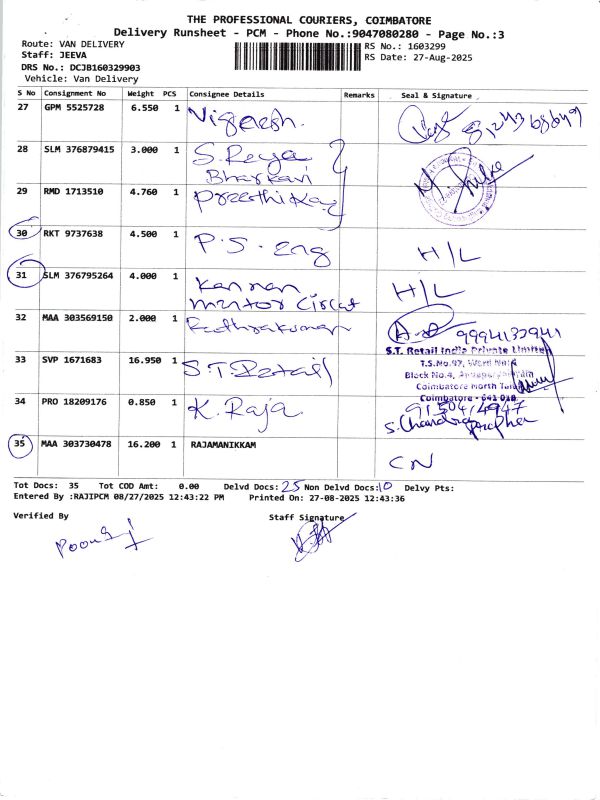 THE PROFESSIONAL COURIERS, COIMBATORE
Delivery Runsheet - PCM - Phone No.:9047080280 - Page No.:3
Route: VAN DELIVERY
RS No.: 1603299
Staff: JEEVA
RS Date: 27-Aug-2025
DRS No.: DCJB160329903
Vehicle: Van Delivery
S No Consignment No Weight PCS Consignee Details Remarks Seal & Signature
27 GPM 5525728 6.550 1 Vignesh.
28 SLM 376879415 3.000 1 S. Reya
Bharkavi
29 RMD 1713510 4.760 1 Preethika
30 RKT 9737638 4.500 1 P.S. Eng H/L
31 SLM 376795264 4.000 1 Kannan H/L
mentor Circut
32 MAA 303569150 2.000 1 Radhakumar 9994133941
S.T. Retail India Private Limited
T.S.No.97, Word No:4
Block No.4,
Coimbatore North
Coimbatore - 641 018
33 SVP 1671683 16.950 1 S.T. Retail
34 PRO 18209176 0.850 1 K. Raja
S. Chandraprapha
35 MAA 303730478 16.200 1 RAJAMANIKKAM CN
Tot Docs: 35 Tot COD Amt: 0.00 Delvd Docs: 25 Non Delvd Docs: 10 Delvy Pts:
Entered By :RAJIPCM 08/27/2025 12:43:22 PM Printed On: 27-08-2025 12:43:36
Verified By Staff Signature